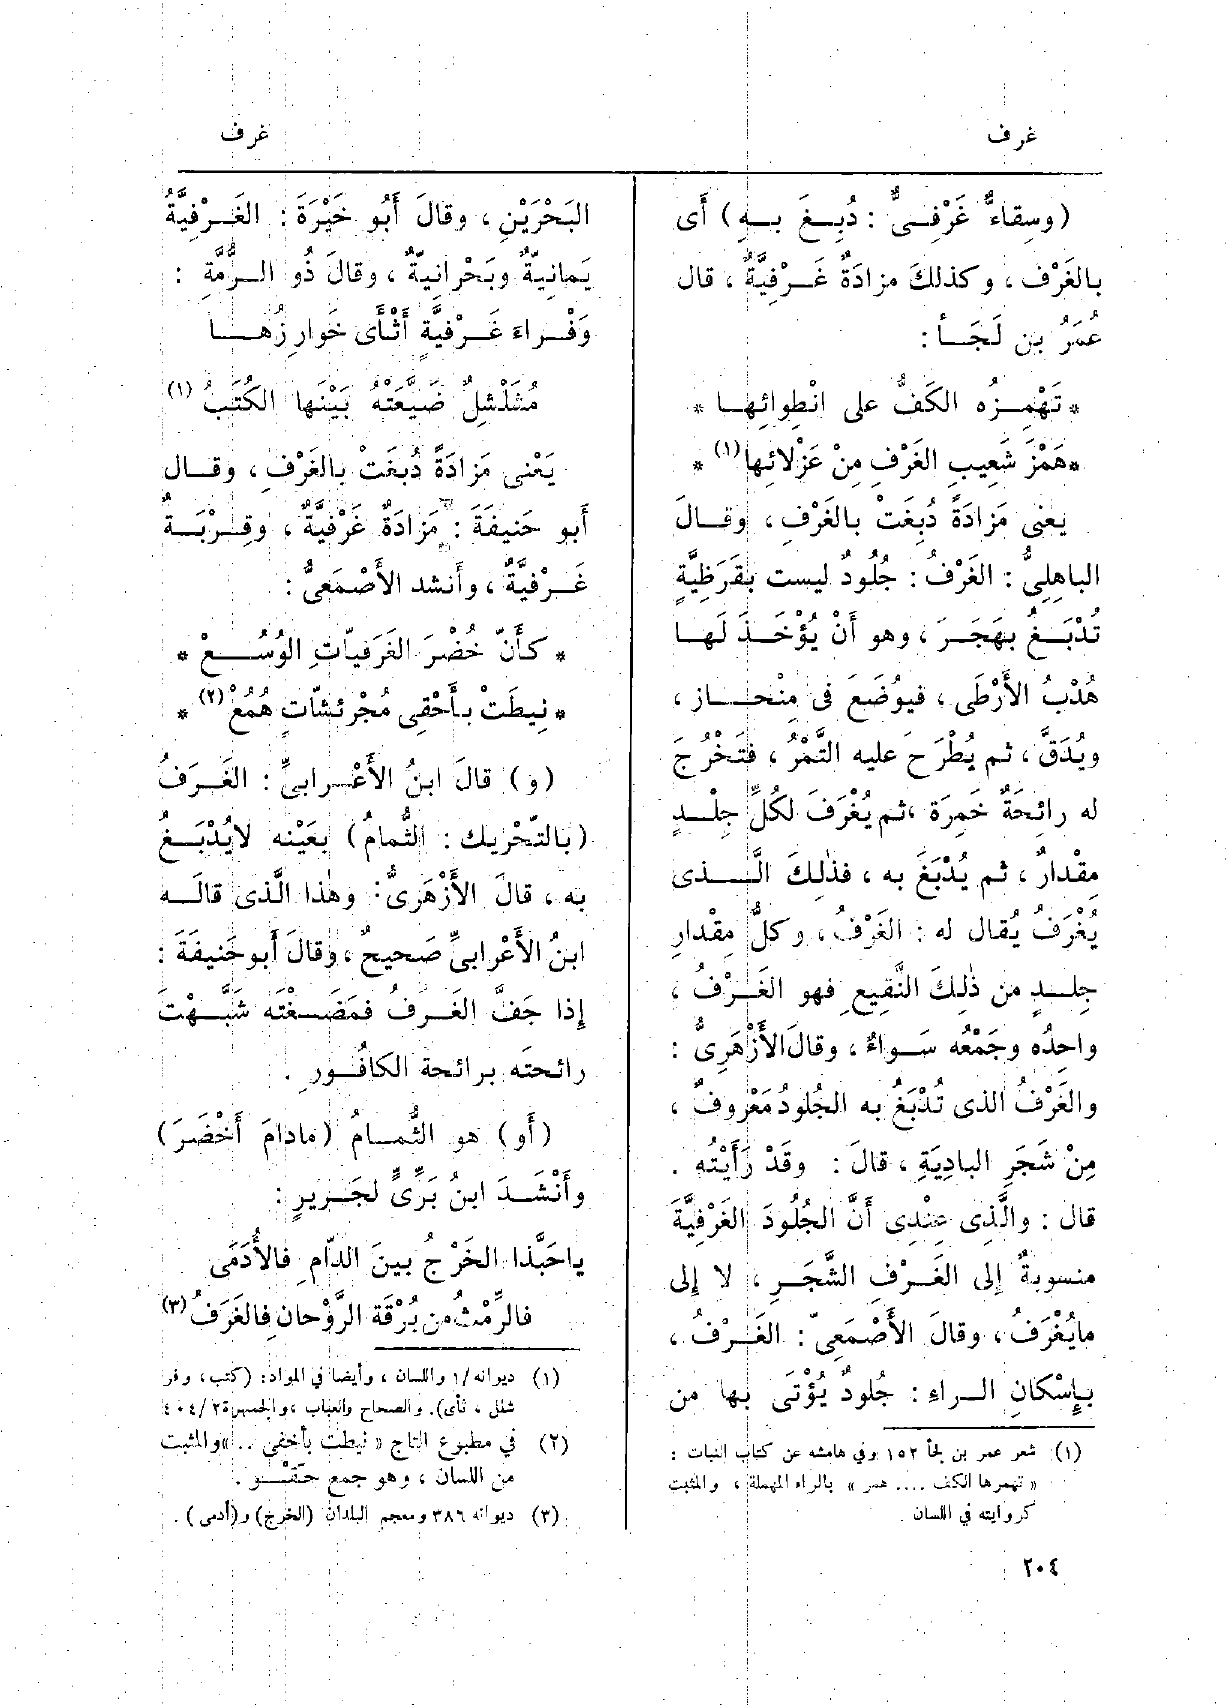 غرف
غرف
(وسِقاءٌ غَرْفِىٌّ : دُبِغَ بـه) أَى
بالغَرْف ، وكذلكَ مزادَةٌ غَرْفيَّةٌ ، قال
عُمَرُ بن لَجَأ :
* تَهْمِزُه الكَفُّ على انْطِوائِها *
* هَمْزَ شَعِيبِ الغَرْفِ مِنْ عَزْلائِها (١) *
يعنى مَزادَةً دُبِغَتْ بالغَرْفِ ، وقـالَ
الباهِلِىُّ : الغَرْفُ : جُلُودٌ ليست بقَرَظِيَّةٍ
تُدْبَـغُ بهَجَرَ ، وهو أَنْ يُؤْخَـذَ لَهـا
هُدْبُ الأَرْطَى ، فيوُضَعَ فى مِنْحـاز ،
ويُدَقَّ ، ثم يُطْرَحَ عليه التَّمْرُ ، فتَخْرُجَ
له رائِحَةٌ خَمِرَة ، ثم يُغْرَفَ لكُلِّ جِلْـدٍ
مِقْدارٌ ، ثم يُدْبَغَ به ، فذٰلِكَ الَّـذى
يُغْرَفُ يُقال له : الغَرْفُ ، وكلُّ مِقْدارِ
جِلْـدٍ من ذٰلِكَ النَّقِيعِ فهو الغَـرْفُ ،
واحِدُه وجَمْعُه سَـواءٌ ، وقالَ الأَزْهَرِىُّ :
والغَرْفُ الذى تُدْبَغُ به الجُلودُ مَعْروفٌ ،
مِنْ شَجَرِ البادِيَةِ ، قالَ : وقَدْ رَأَيْتُه .
قال : والَّذِى عِنْدِى أَنَّ الجُلُودَ الغَرْفِيَّةَ
منسوبةٌ إلى الغَـرْفِ الشَّجَـرِ ، لا إلى
مايُغْرَفُ ، وقالَ الأَصْمَعِىّ : الغَـرْفُ ،
بإِسْكانِ الـراءِ : جُلودٌ يُؤْتَى بهـا من
(١) شعر عمر بن لجأ ١٥٢ وفي هامشه عن كتاب النبات :
« تهمرها الكف .... همر » بالراء المهملة ، والمثبت
كروايته في اللسان .
٢٠٤
البَحْرَيْنِ ، وقالَ أَبُو خَيْرَةَ : الغَـرْفِيَّةُ
يَمانِيَةٌ وبَحْرانِيّةٌ ، وقالَ ذُو الـرُّمَّةِ :
وَفْـراءَ غَـرْفِيَّةٍ أَثْـأَى خَوارِزُهـا
مُشَلْشِلٌ ضَيَّعَتْهُ بَيْنَها الكُتَبُ (١)
يَعْنى مَزادَةً دُبغَتْ بالغَرْفِ ، وقـال
أَبو حَنِيفَةَ : مَزادَةٌ غَرْفِيَّةٌ ، وقِـرْبَـةٌ
غَـرْفِيَّةٌ ، وأَنشد الأَصْمَعِىُّ :
* كـأَنّ خُضْرَ الغَرَفيّاتِ الوُسُـعْ *
* نِيطَتْ بـأَحْقِى مُجْرئشّاتٍ هُمُعْ (٢) *
(و) قالَ ابنُ الأَعْـرابىِّ : الغَـرَفُ
(بالتّحْرِيك : الثُّمامُ) بعَيْنِه لايُدْبَـغُ
به ، قالَ الأَزْهَرِىُّ : وهٰذا الَّذى قالَـه
ابنُ الأَعْرابىِّ صَحيحٌ ، وقالَ أَبوحَنيفَةَ :
إذا جَفَّ الغَـرَفُ فمَضَـغْتَه شَبَّـهْتَ
رائحتَه برائحة الكافُـورِ .
(أَو) هو الثُّمـامُ (مادامَ أَخْضَرَ)
وأَنْشَـدَ ابنُ بَرِّىٍّ لجَـرِيرٍ :
ياحَبَّذا الخَرْجُ بينَ الدّامِ فالأُدَمَى
فالرِّمْثُ من بُرْقَة الرَّوْحانِ فالغَرَفُ (٣)
(١) ديوانه/١ واللسان ، وأيضا في المواد : (كتب ، وفر
شلل ، ثأى). والصحاح والعباب ، والجمهرة ٤٠٤/٢
(٢) في مطبوع التاج « نيطت بأخفي .. » والمثبت
من اللسان ، وهو جمع حَقْـو .
(٣) ديوانه ٣٨٦ ومعجم البلدان (الخرج) و(أدمى) .